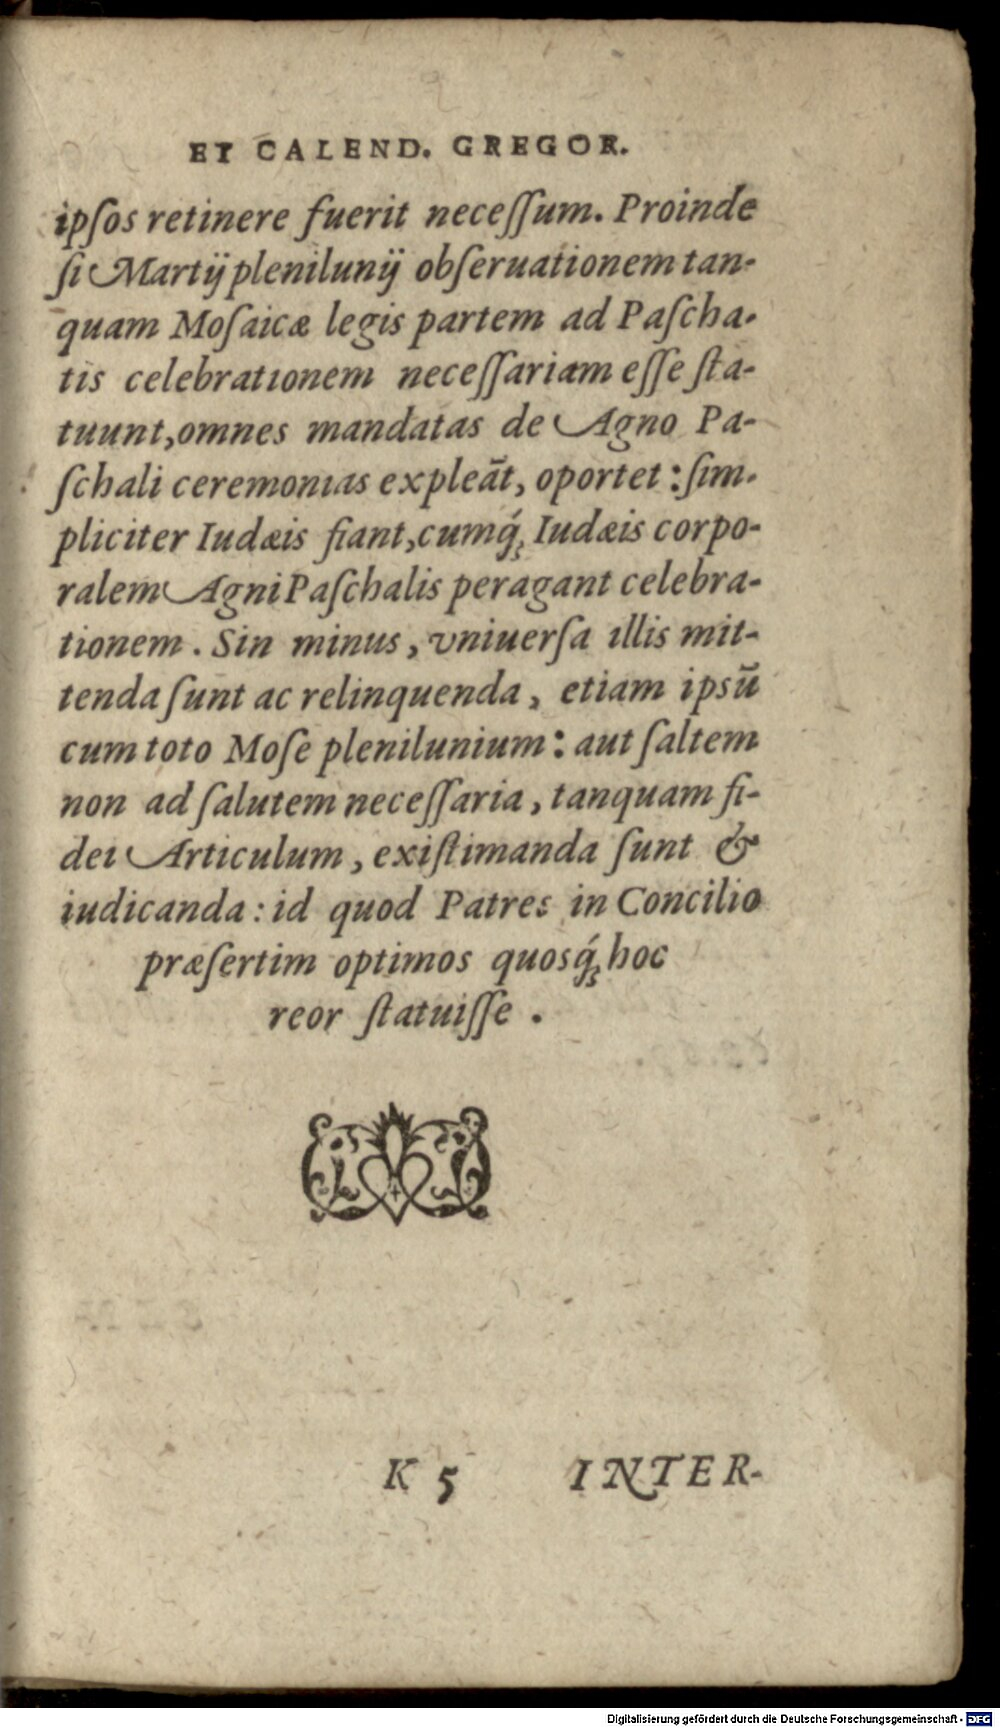 ET CALEND. GREGOR.
ipſos retinere fuerit neceſſum. Proinde
ſi Martij plenilunij obſeruationem tan-
quam Moſaicæ legis partem ad Paſcha-
tis celebrationem neceſſariam eſſe ſta-
tuunt, omnes mandatas de Agno Pa-
ſchali ceremonias expleãt, oportet: ſim-
pliciter Iudæis fiant, cumq́; Iudæis corpo-
ralem Agni Paſchalis peragant celebra-
tionem. Sin minus, vniuerſa illis mit-
tenda ſunt ac relinquenda, etiam ipsũ
cum toto Moſe plenilunium: aut ſaltem
non ad ſalutem neceſſaria, tanquam fi-
dei Articulum, exiſtimanda ſunt &
iudicanda: id quod Patres in Concilio
præſertim optimos quosq́; hoc
reor ſtatuiſſe.
K 5 INTER-
Digitalisierung gefördert durch die Deutsche Forschungsgemeinschaft - DFG